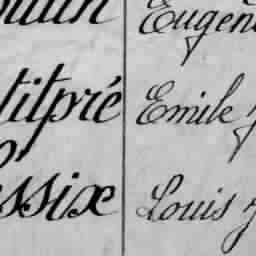 Eugen
titpré Emile J
ssix Louis J